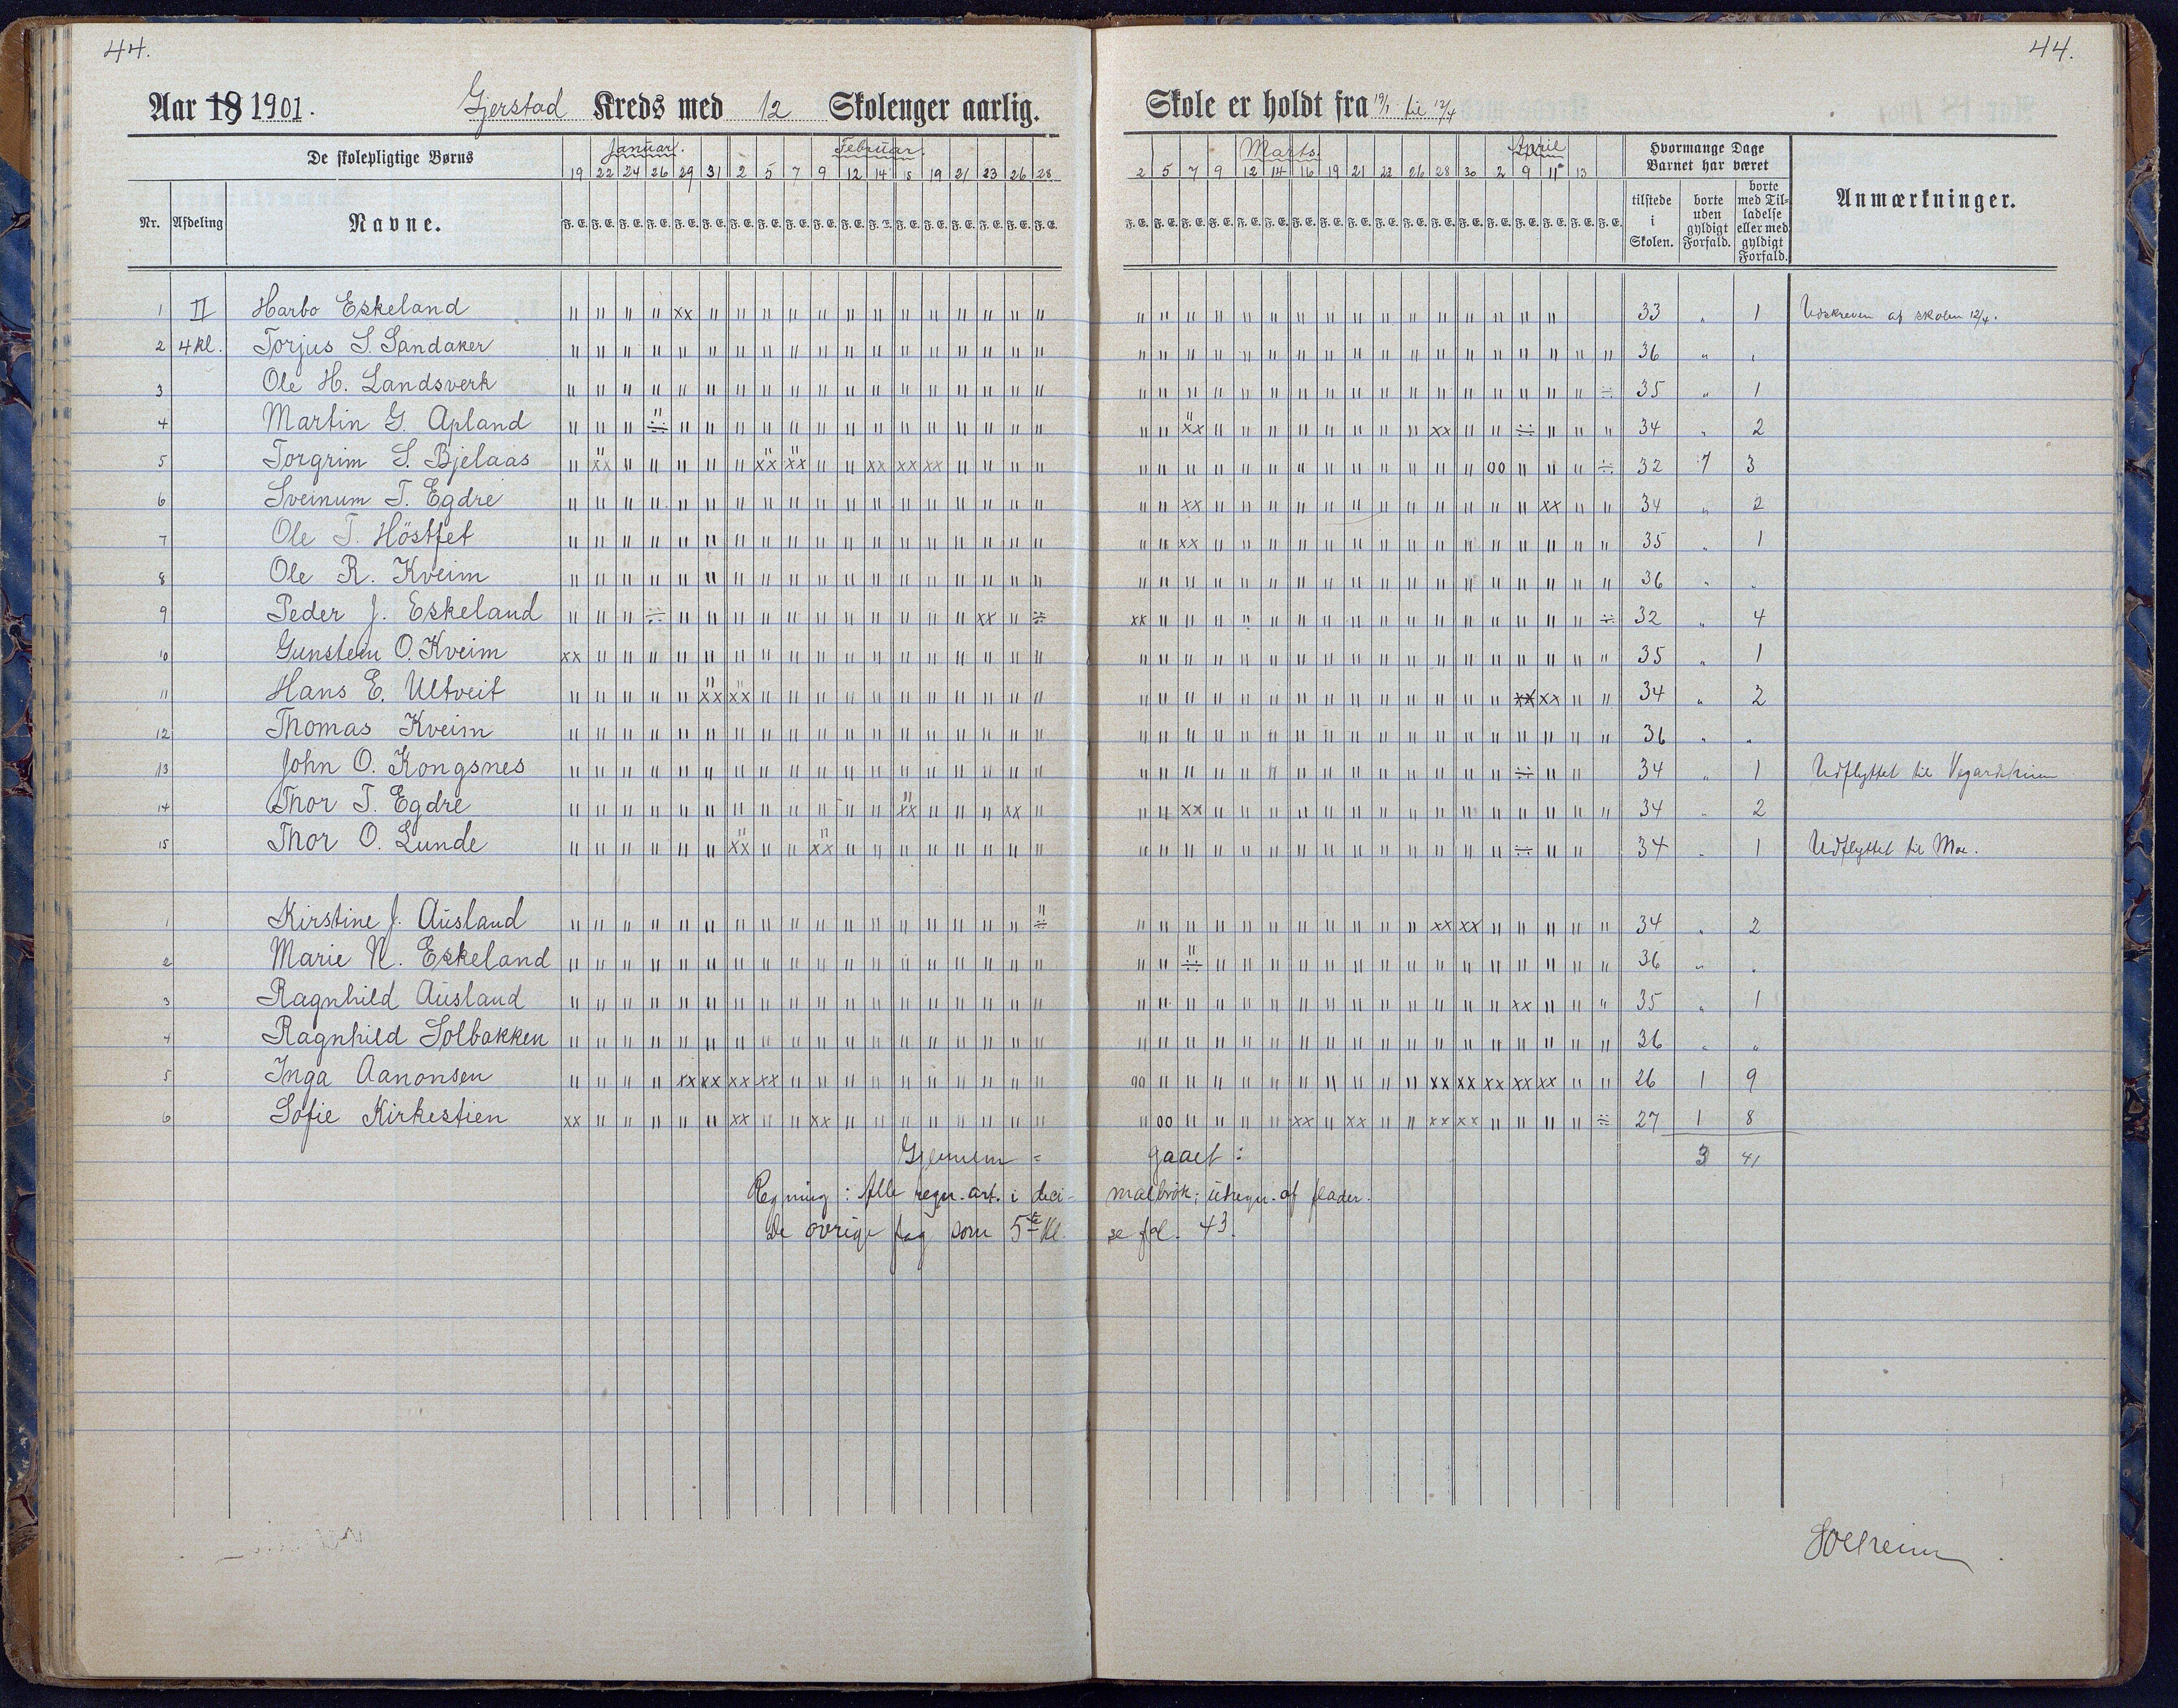 44.
44.
Aar 18 1901. Gjerstad Kreds med 12 Skolenger aarlig. Skole er holdt fra 19/1 til 12/4
De skolepligtige Børns Januar. Februar. Marts. April Hvormange Dage Barnet har været
19 22 24 26 29 31 2 5 7 9 12 14 15 19 21 23 26 28 2 5 7 9 12 14 16 19 21 22 26 28 30 2 9 11 13
Nr. Afdeling Navne. F. E. F. E. F. E. F. E. F. E. F. E. F. E. F. E. F. E. F. E. F. E. F. E. F. E. F. E. F. E. F. E. F. E. F. E. tilstede i Skolen. borte uden gyldigt Forfald. borte med Tilladelse eller med gyldigt Forfald. Anmærkninger.
1 II Harbo Eskeland 33 " 1 Udskreven af skolen 12/4.
2 4 kl. Torjus S. Sandaker 36 " "
3 Ole H. Landsverk 35 " 1
4 Martin G. Apland 34 " 2
5 Torgrim S. Bjelaas 32 1 3
6 Sveinum T. Egdre 34 " 2
7 Ole T. Höstfet 35 " 1
8 Ole R. Kveim 36 " "
9 Peder J. Eskeland 32 " 4
10 Gunstein O. Kveim 35 " 1
11 Hans E. Ultveit 34 " 2
12 Thomas Kveim 36 " "
13 John O. Kongsnes 34 " 1 Udflyttet til Vegardsheien
14 Thor T. Egdre 34 " 2
15 Thor O. Lunde 34 " 1 Udflyttet til Moe.
1 Kirstine J. Ausland 34 " 2
2 Marie N. Eskeland 36 " "
3 Ragnhild Ausland 35 " 1
4 Ragnhild Solbakken 36 " "
5 Inga Aanonsen 26 1 9
6 Sofie Kirkestien 27 1 8
Gjennem= gaaet: 3 41
Regning: Alle regn. art. i deci- malbrök; utregn. af flader.
De øvrige fag som 5te Kl. se fol. 43.
Solheim